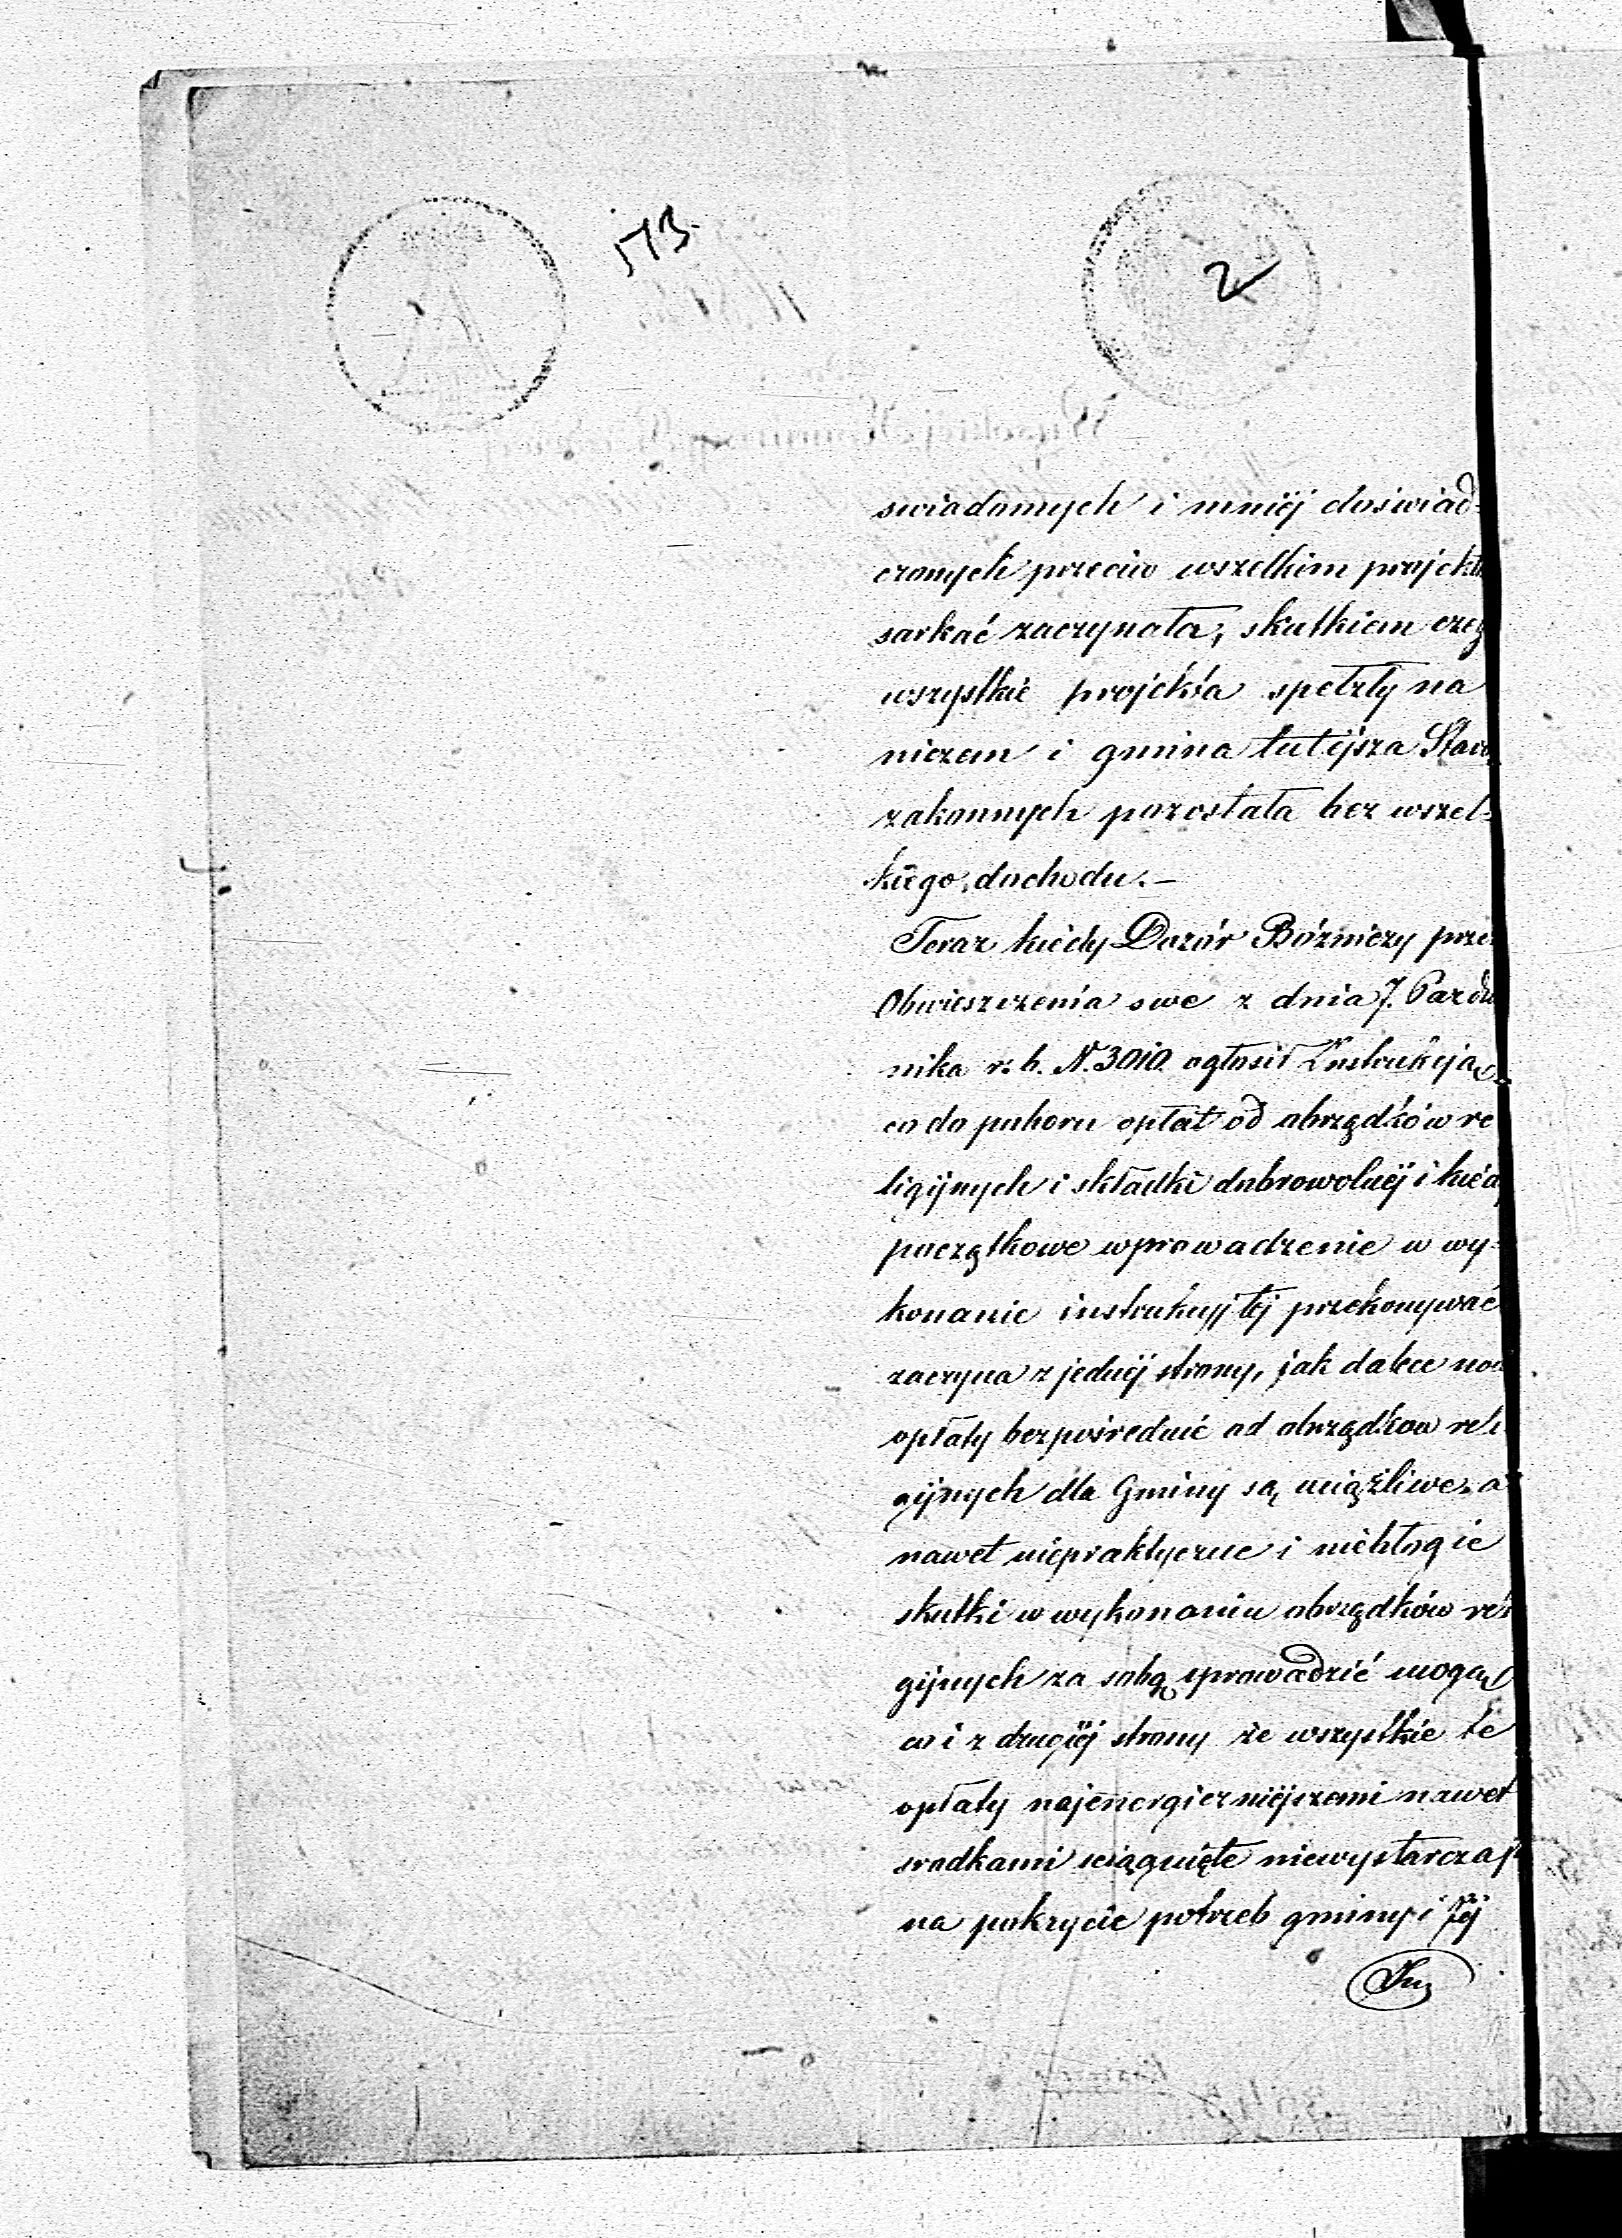 573.
2
swiadomych i mniéj doświad-
czonych przeciw wszelkim projekto
sarkać zaczynała, skutkiem czeg
wszystkie projekta spełzły na
niczem i gmina tutéjsza Staro
zakonnych pozostała bez wszel-
kiégo, dochodu.—
Teraz kiédy Dozór Bóżniczy prze
Obwieszczenia swe z dnia 7. Paźdz
nika r. b. N. 3010. ogłosił Instrukcją
co do poboru opłat od obrządków re
ligijnych i składki dobrowolnéj i kiéd
początkowe wprowadzenie w wy-
konanie instrukcyj téj przekonywać
zaczyna z jednéj strony, jak dalece
opłaty bezpośrednié od obrządkow reli
gijnych dla Gminy są uciążliwe, a
nawet niepraktyczne i niebłogie
skutki w wykonaniu obrządków reli
gijnych za sobą sprowadzić mogą
co i z drugiéj strony że wszystkie te
opłaty najenergiczniéjszemi nawet
srodkami sciągnięte niewystarczają
na pokrycie potrzeb gminy i Jéj